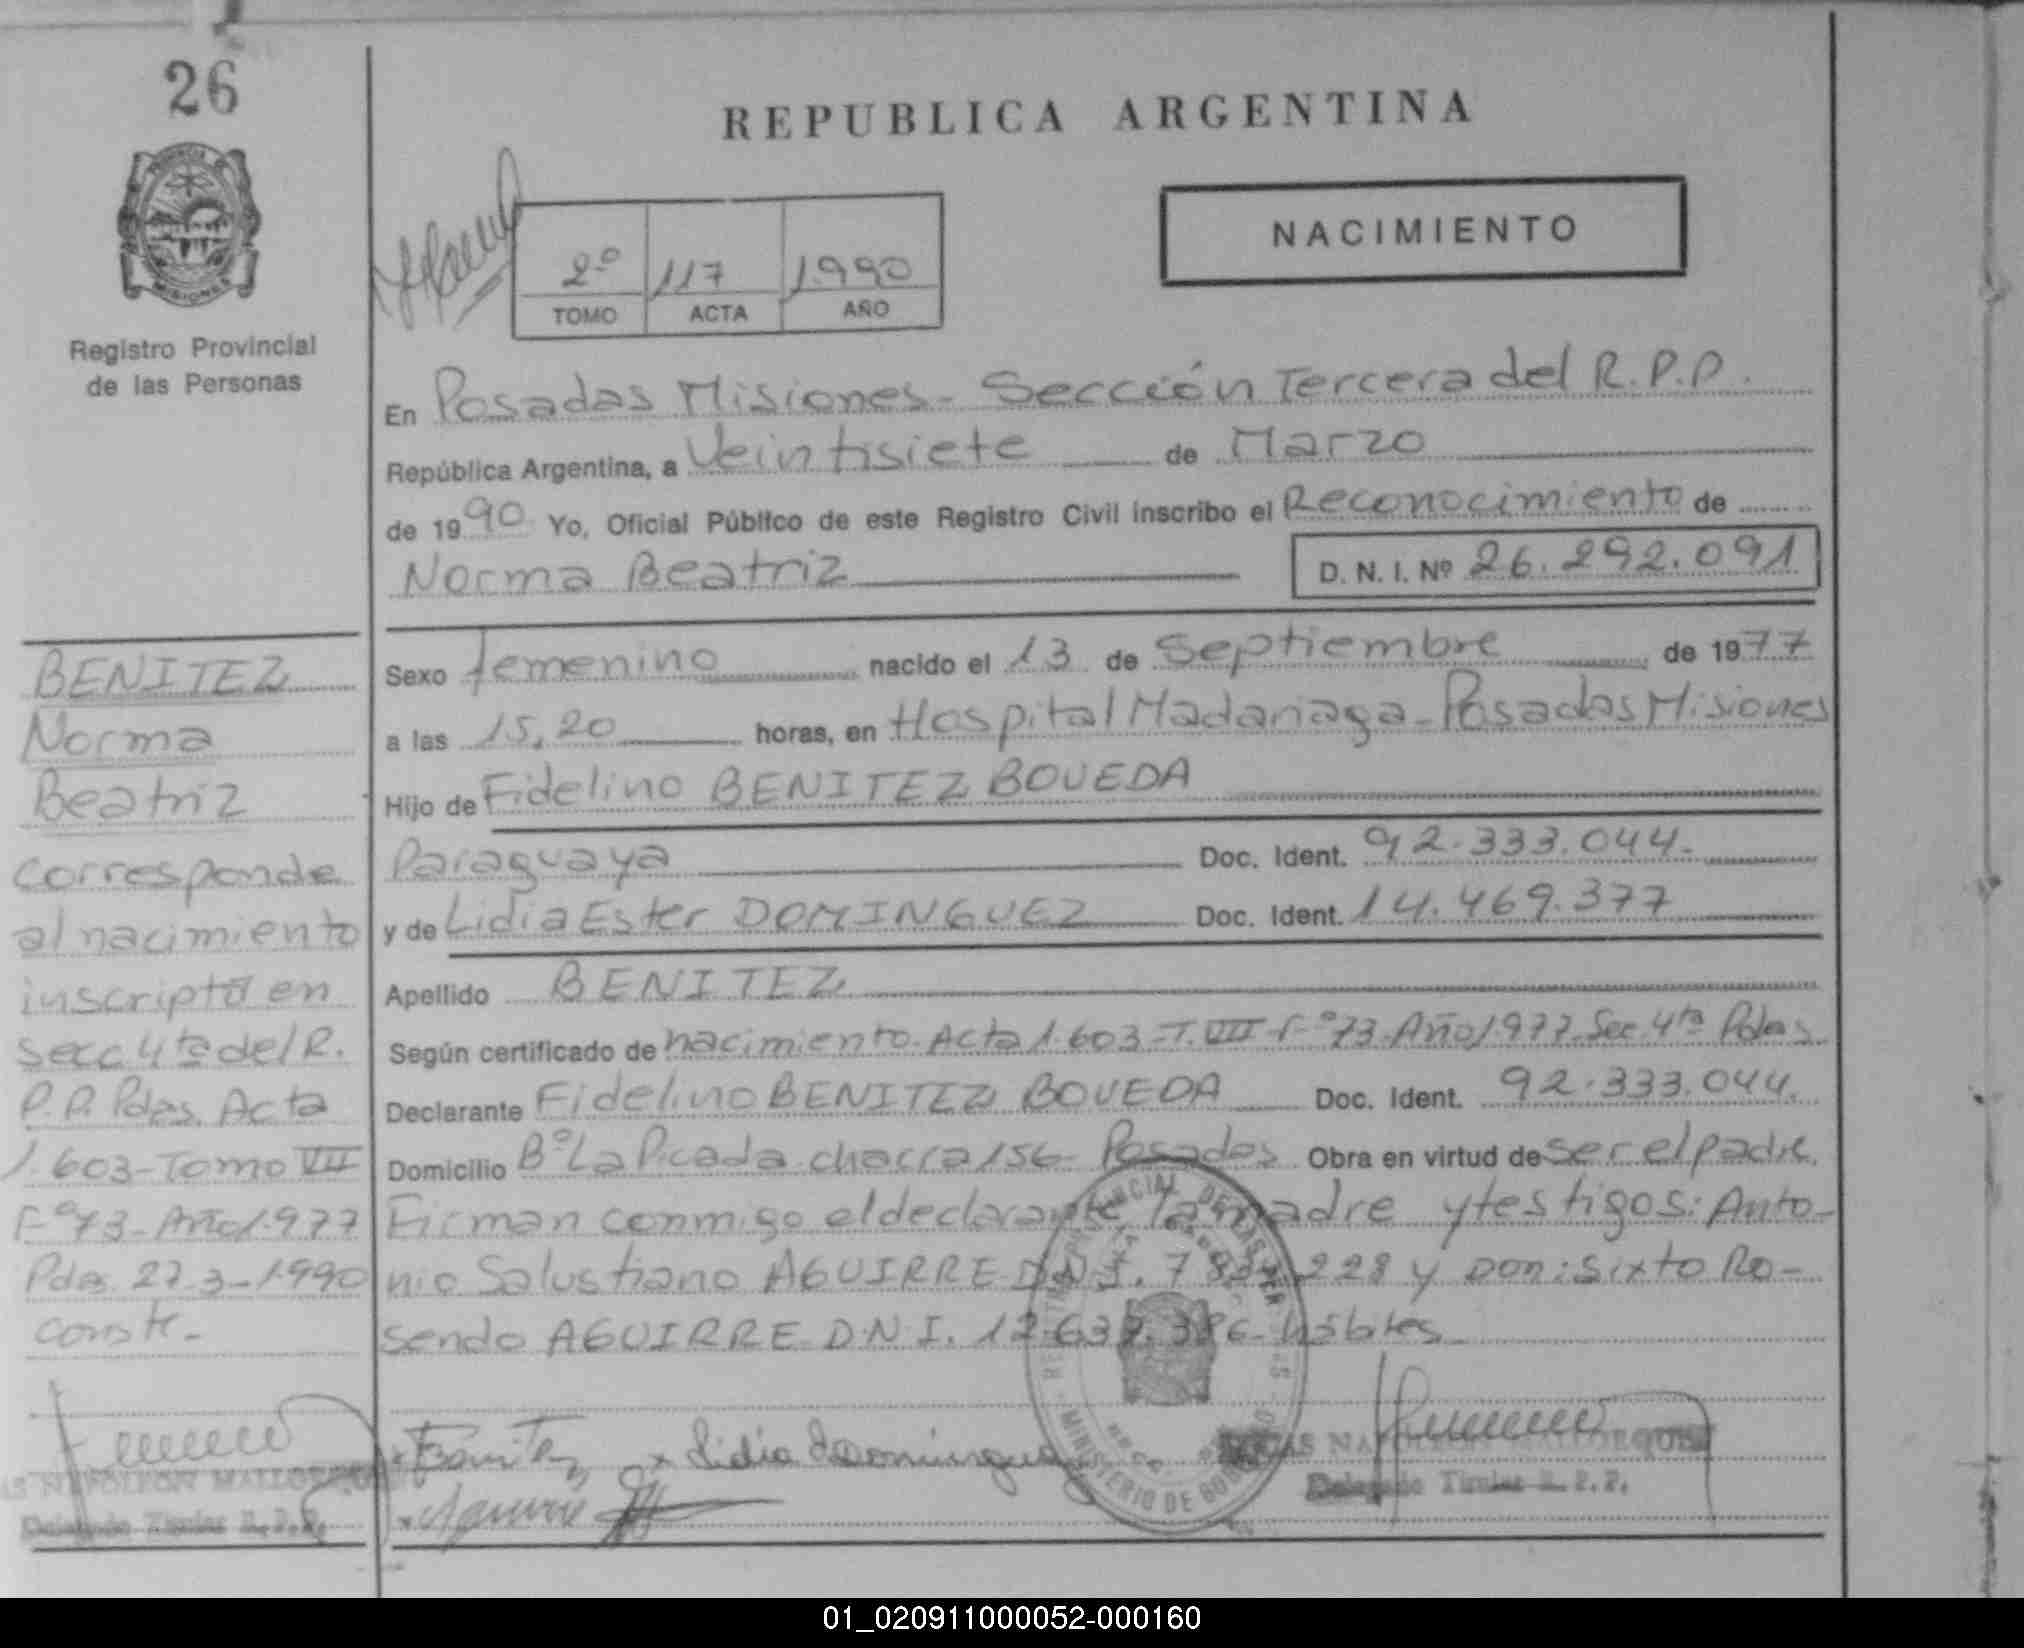 26
REPUBLICA ARGENTINA
PROVINCIA
MISIONES
Registro Provincial
de las Personas
2º 117 1.990
TOMO ACTA AÑO
NACIMIENTO
En Posadas Misiones- Sección Tercera del R.P.P.
República Argentina, a Veintisiete de Marzo
de 1990 Yo, Oficial Público de este Registro Civil inscribo el Reconocimiento de
Norma Beatriz D. N. I. Nº 26.292.091
Sexo femenino nacido el 13 de Septiembre de 1977
a las 15,20 horas, en Hospital Madariaga-Posadas Misiones
Hijo de Fidelino BENITEZ BOVEDA
Paraguaya Doc. Ident. 92.333.044.
y de Lidia Ester DOMINGUEZ Doc. Ident. 14.469.377
Apellido BENITEZ
Según certificado de nacimiento. Acta 1.603-T.VII-Fº73-Año 1977-Sec. 4ta Pdas.
Declarante Fidelino BENITEZ BOVEDA Doc. Ident. 92.333.044.
Domicilio Bº La Picada chacra 156- Posadas Obra en virtud de ser el padre.
Firman conmigo el declarante, la madre y testigos: Anto-
nio Salustiano AGUIRRE D.N.I. 228 y Don: Sixto Ro-
sendo AGUIRRE D.N.I. hábiles
BENITEZ
Norma
Beatriz
corresponde
al nacimiento
inscripto en
secc 4ta del R.
P.P. Pdas. Acta
1.603-Tomo VII
Fº73-Año 1.977
Pdas. 27-3-1.990
conste-
x Benitez x Lidia Dominguez
MINISTERIO DE GOBIERNO
NAPOLEON MALLORQUIN
Delegado Titular R.P.P.
AS NAPOLEON MALLORQUIN
Delegado Titular R.P.P.
01_020911000052-000160